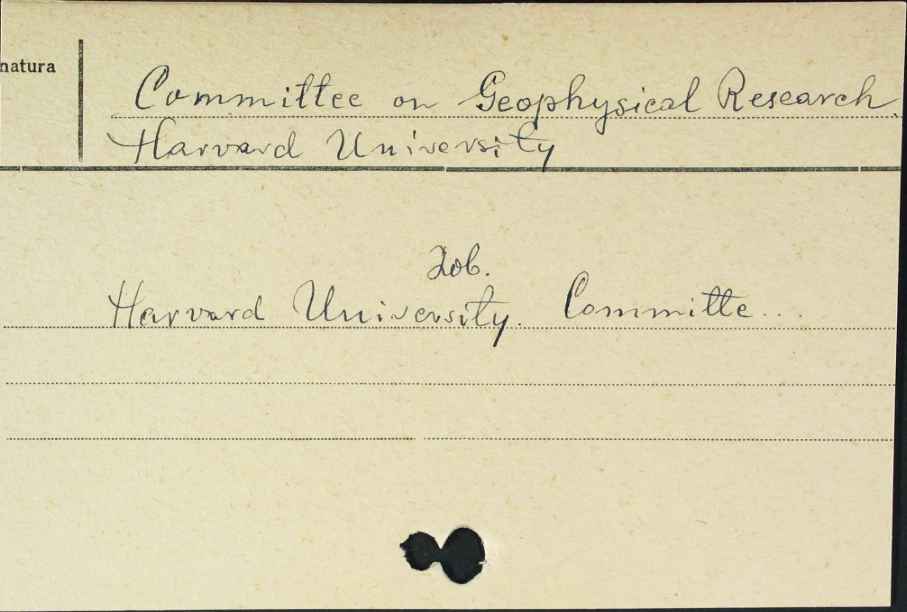 natura
Committee on Geophysical Research.
Harvard University
Zob.
Harvard University. Committe...